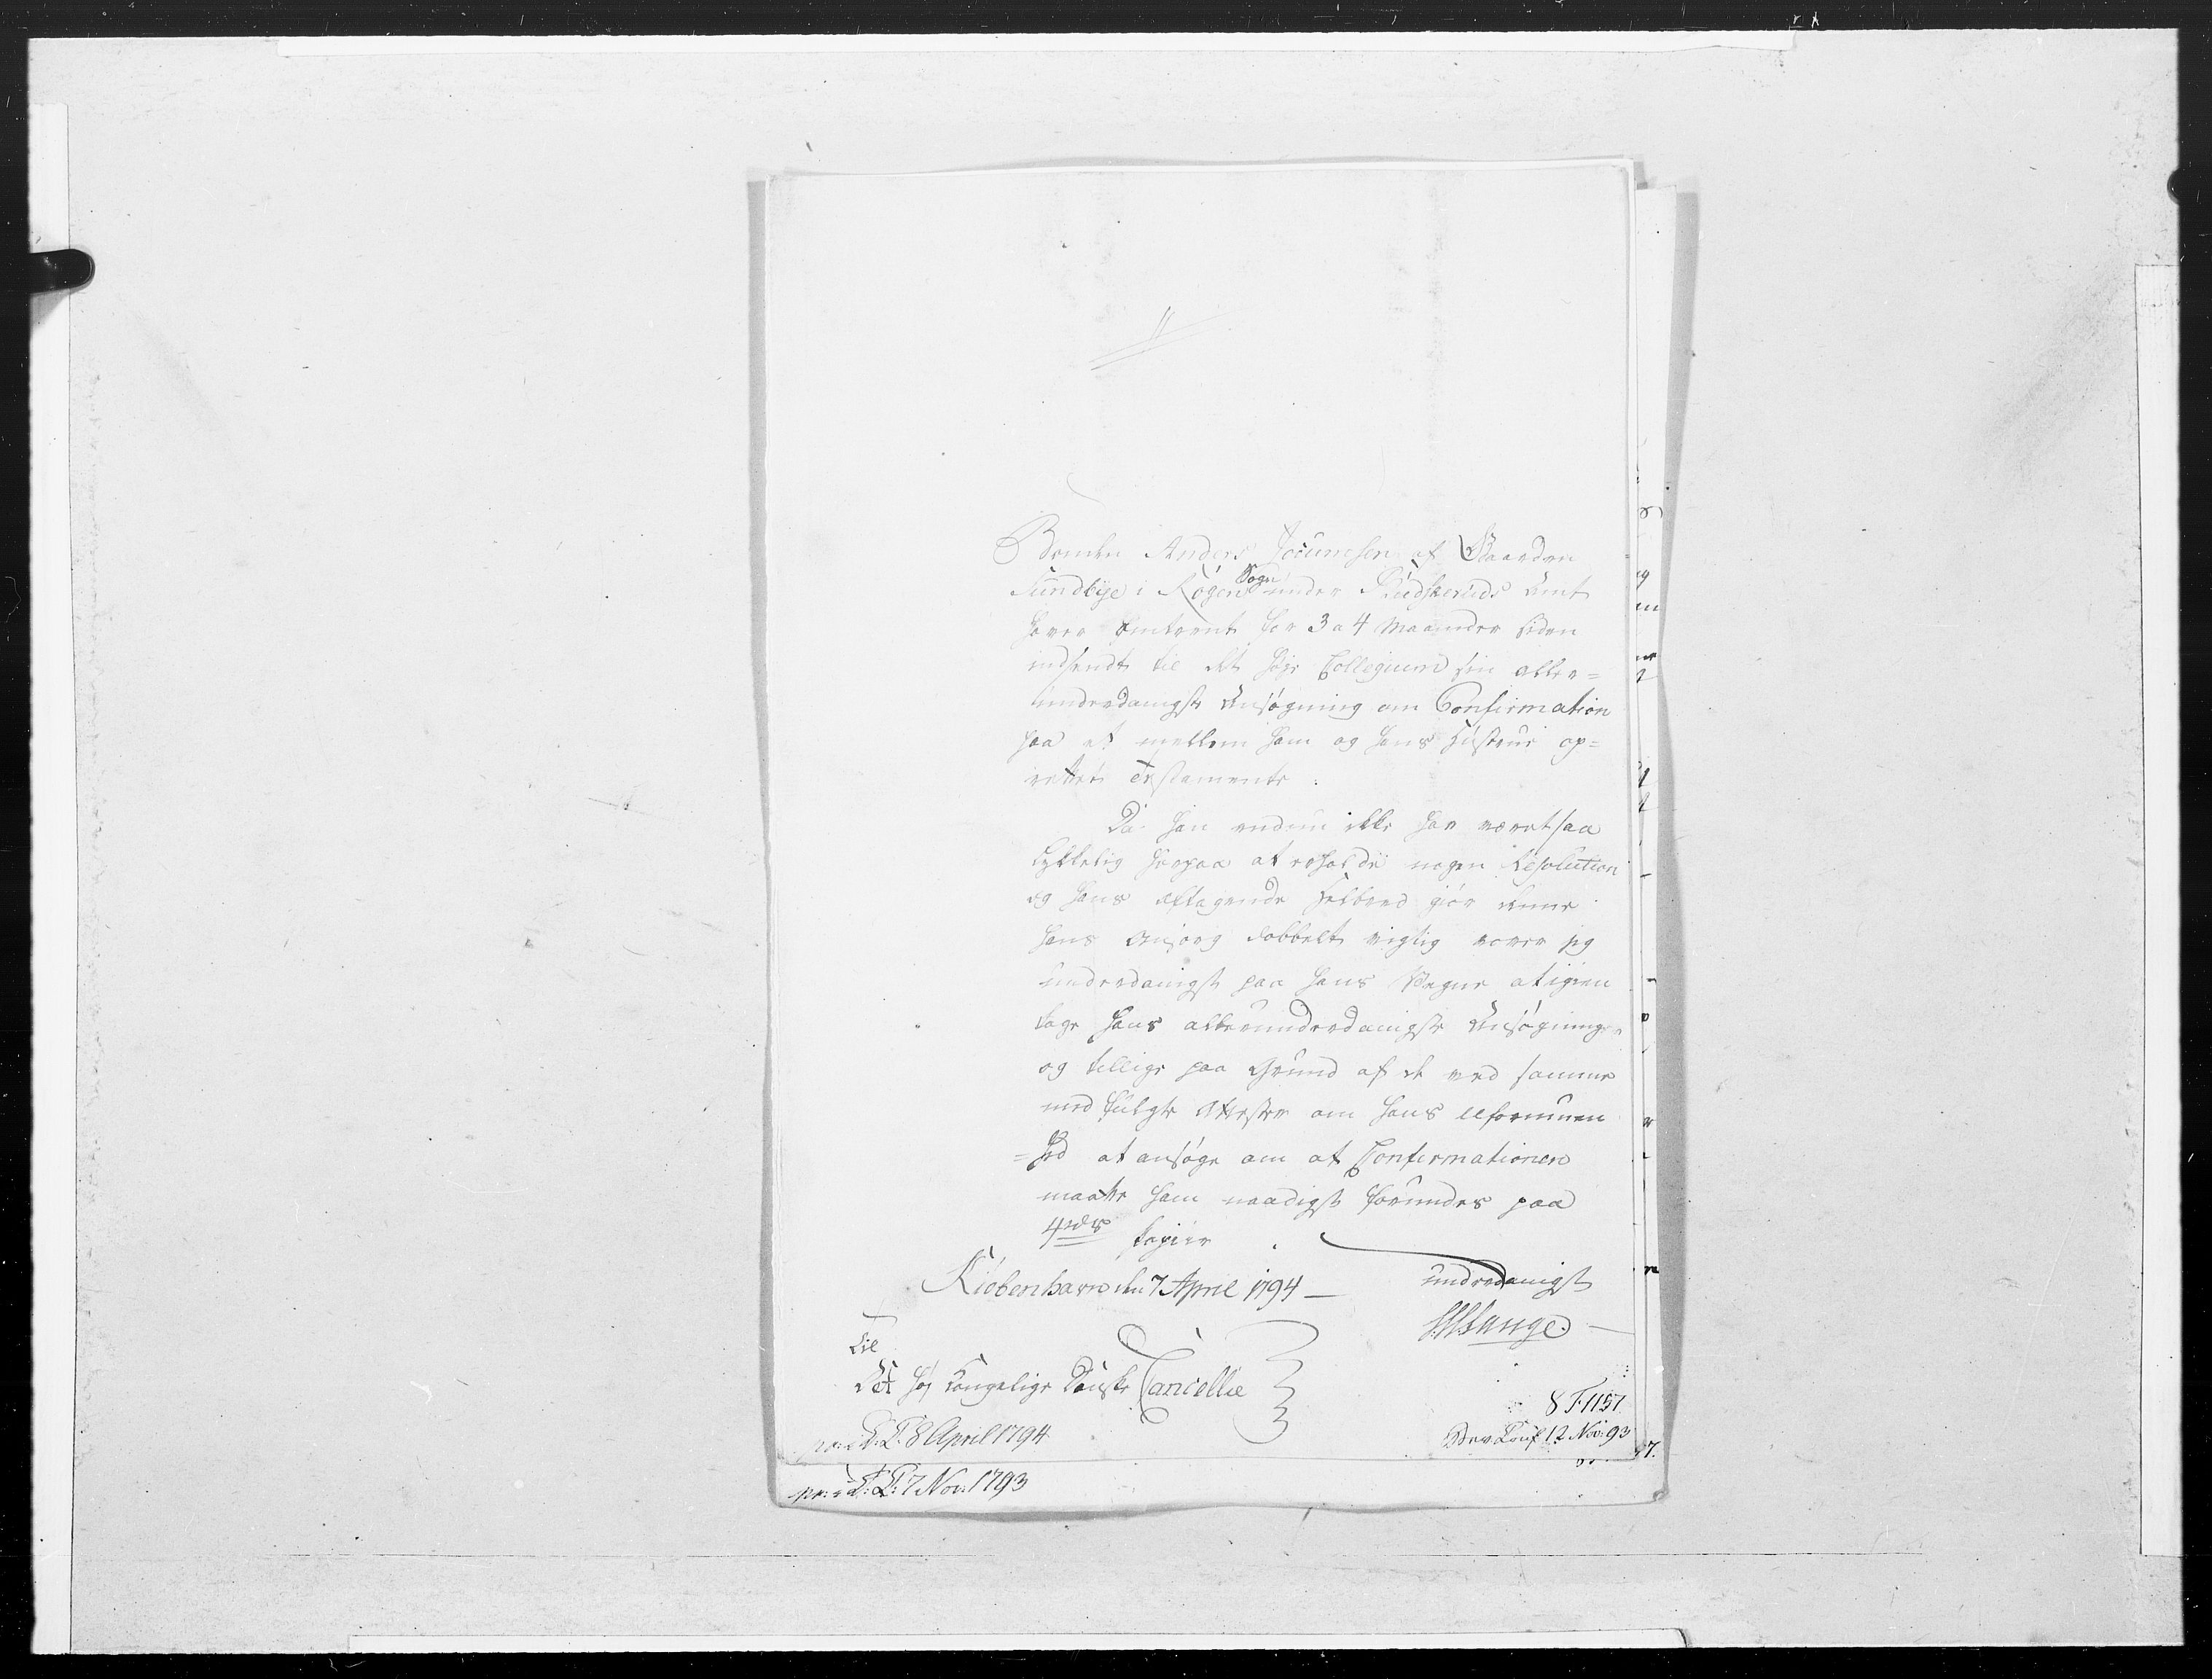 Bonden Anders Jocumsen af Gaarden
Sundbye i Røgen Sogn under Budskeruds Amt
haver omtrent for 3 a 4 Maaneder siden
indsendt til det høje Collegium sin aller=
underdanigste Ansøgning om Confirmation
paa et mellem ham og hans Hustrue op=
rettet Testamente.
Da han endnu ikke har været saa
lykkelig herpaa at erholde nogen Resolution
og hans aftagende Helbred giør denne
hans dobbelt vigtig vover jeg
underdanigst paa hans Vegne at igien
tage hans allerunderdanigste Ansøgning
og tillige paa Grund af de ved samme
med fulgte Attester om hans uformuen
=hed at ansøge om at Confirmationen
maatte ham naadigst forundes paa
4de Papiir
Kiøbenhavn den 7 April 1794 —
underdanigst
Lange.
Til
Det høj Kongelige Danske Cancellie
pr: D: C: 8 April 1794
8 T. 1157
Bev. Conf 12 Nov: 93
pr: D: C: 7 Nov: 1793